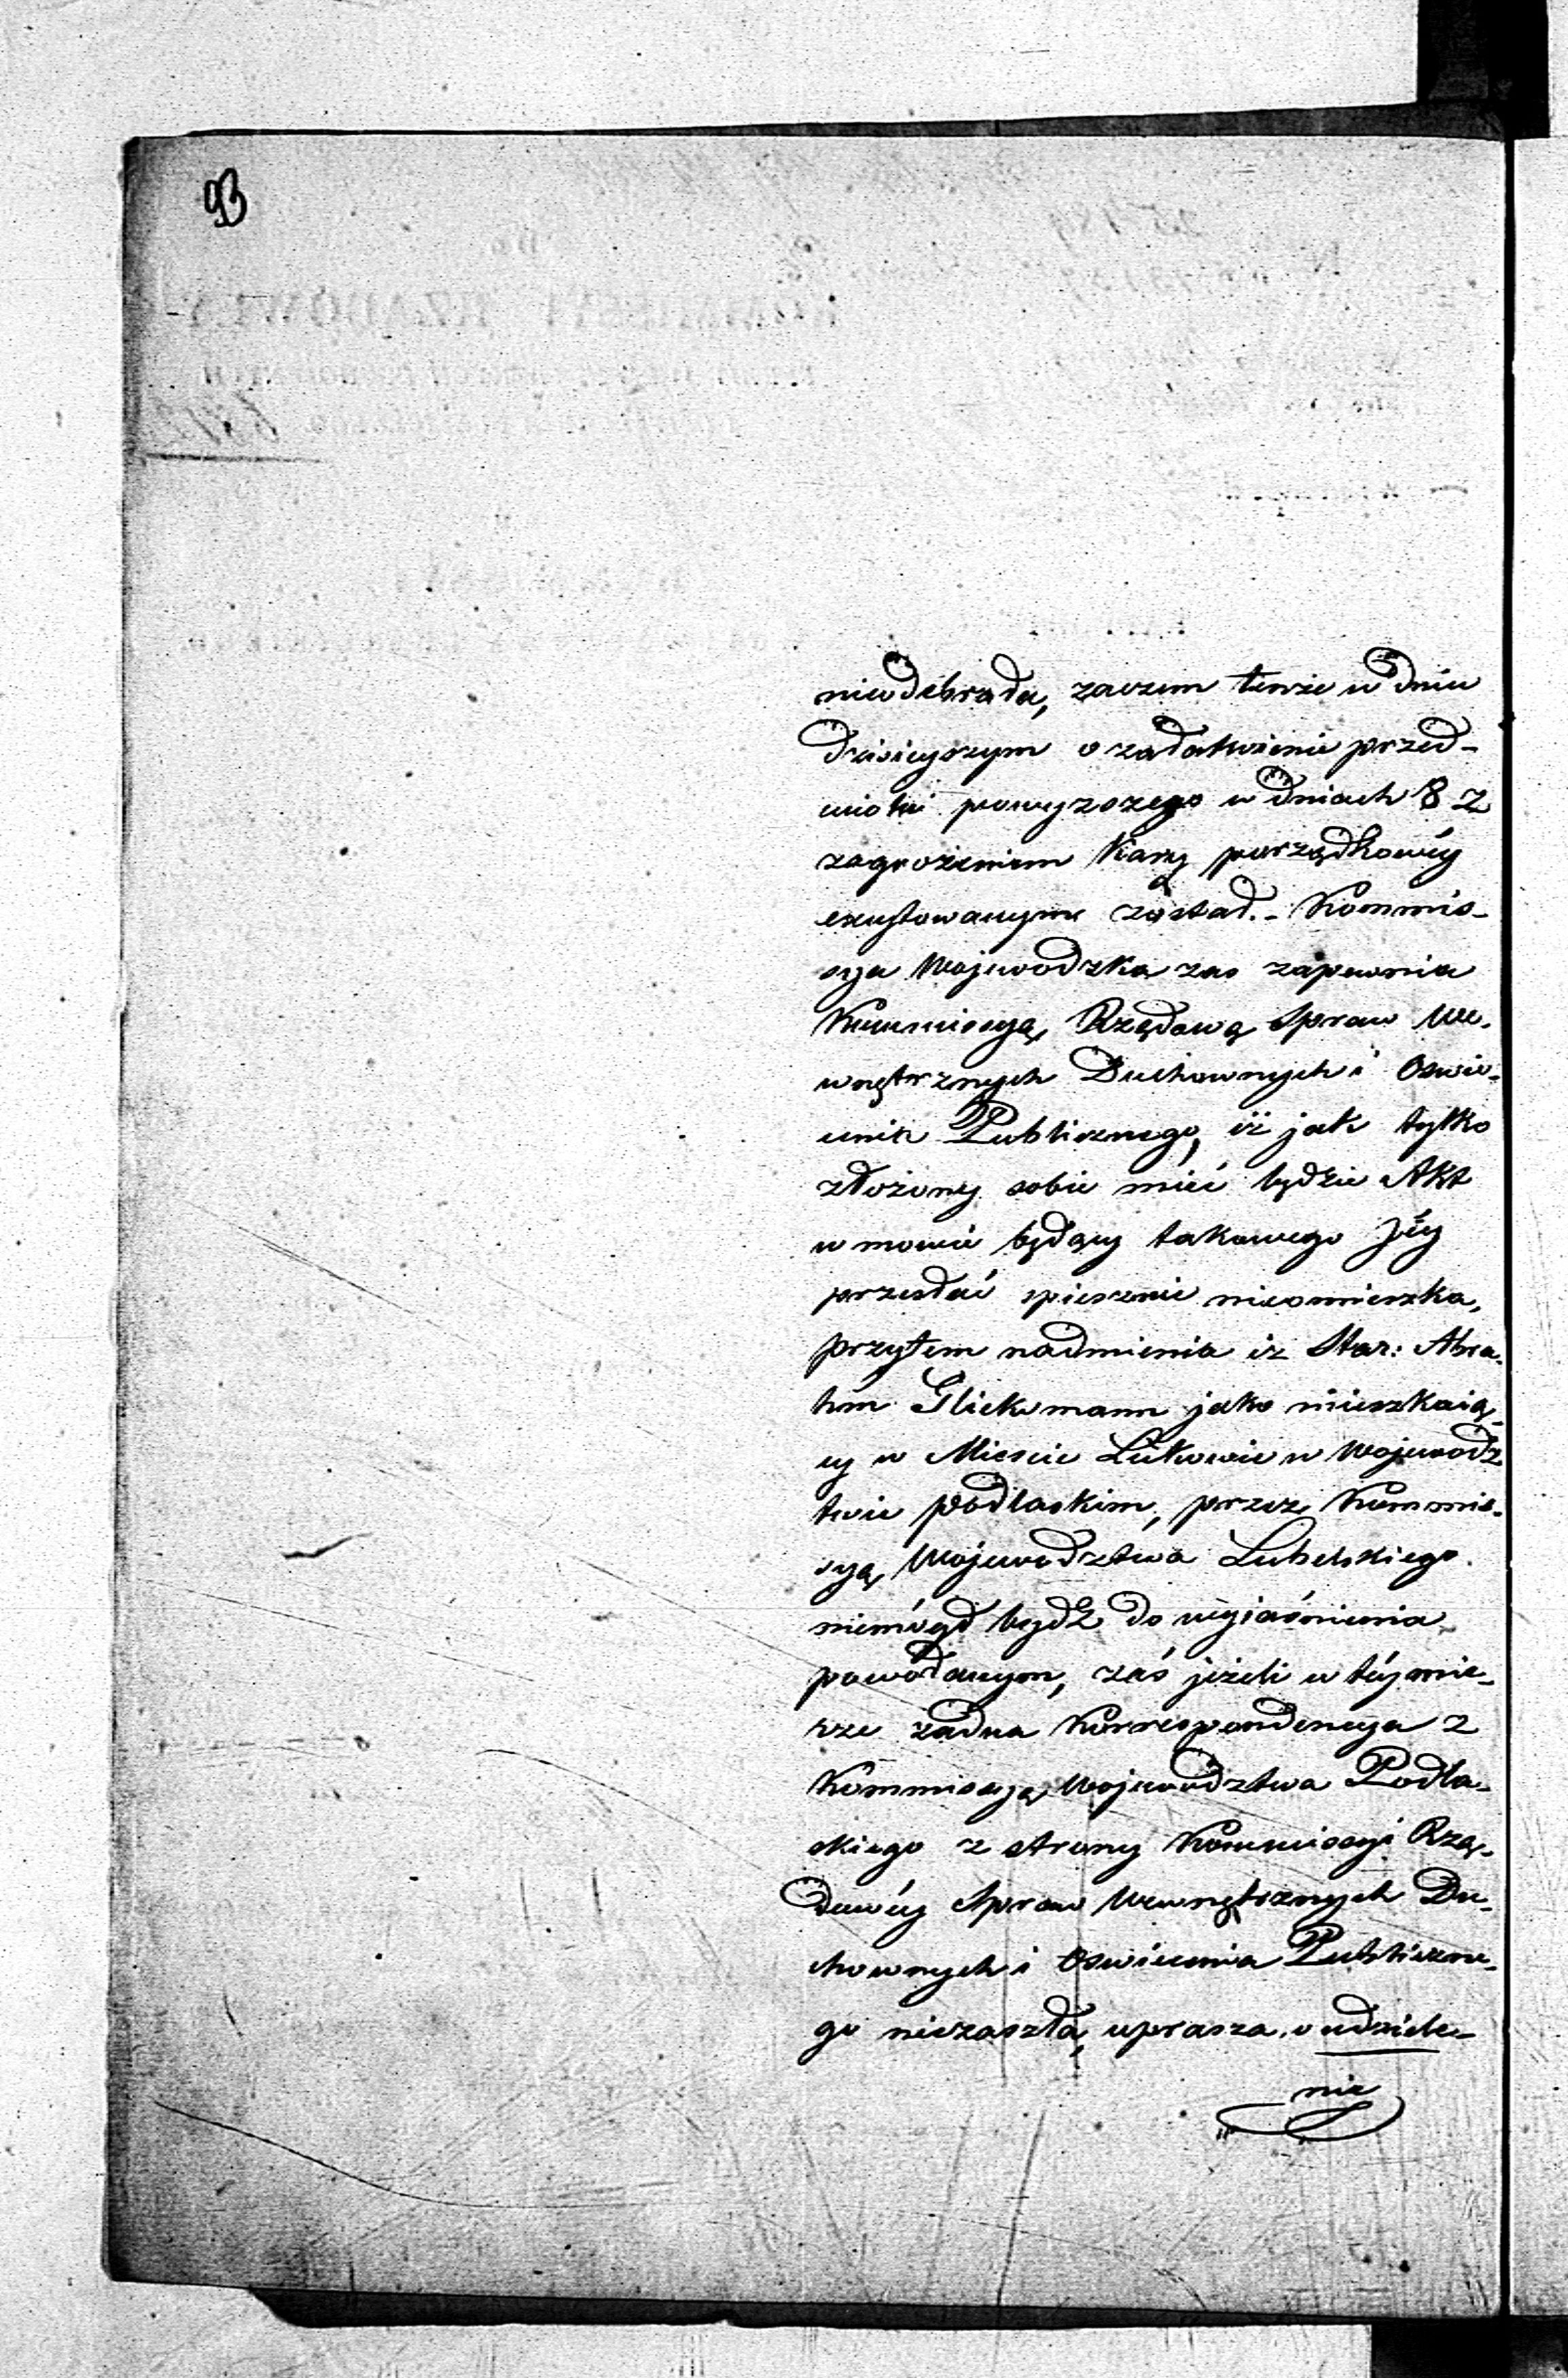 93
nieodebrała, zaczem tenże w dniu
dzisieyszym o załatwienie przed-
miotu powyższego w dniach 8 z
zagrożeniem Kary porządkowéy
excytowanym został.- Kommis-
sya Wojewodzka zas zapewnia
Kommissyą Rządową Spraw We-
wnętrznych Duchownych i Oswie-
cenia Publicznego, iż jak tylko
złożony sobie mieć będzie Akt
w mowie będący takowego Jéy
przesłać spiesznie nieomieszka,
przytem nadmienia iz Star: Abra-
hm Glickmann jako mieszkaią-
cy w Miescie Łukowie w Wojewodz
twie podlaskim, przez Kommis-
syą Wojewodztwa Lubelskiego
niemógł bydź do wyjaśnienia
powołanym, zaś jeżeli w téj mie-
rze żadna Korrespondencya z
Kommissyą Wojewodztwa Podla-
skiego z strony Kommissyi Rzą-
dowéy Spraw Wewnętrznych Du-
chownych i Oswiecenia Publiczne-
go niezaszła, uprasza o udziele-
nie